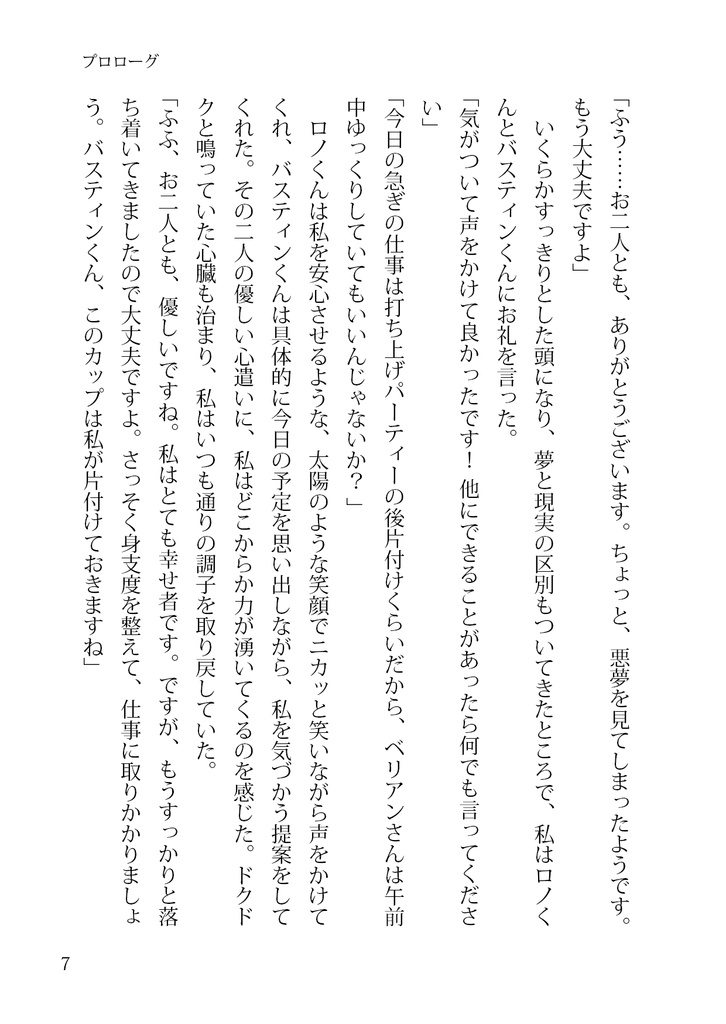 プロローグ
「ふう……お二人とも、ありがとうございます。ちょっと、悪夢を見てしまったようです。
もう大丈夫ですよ」
　いくらかすっきりとした頭になり、夢と現実の区別もついてきたところで、私はロノく
んとバスティンくんにお礼を言った。
「気がついて声をかけて良かったです！ 他にできることがあったら何でも言ってくださ
い」
「今日の急ぎの仕事は打ち上げパーティーの後片付けくらいだから、ベリアンさんは午前
中ゆっくりしていてもいいんじゃないか？」
　ロノくんは私を安心させるような、太陽のような笑顔でニカッと笑いながら声をかけて
くれ、バスティンくんは具体的に今日の予定を思い出しながら、私を気づかう提案をして
くれた。その二人の優しい心遣いに、私はどこからか力が湧いてくるのを感じた。ドクド
クと鳴っていた心臓も治まり、私はいつも通りの調子を取り戻していた。
「ふふ、お二人とも、優しいですね。私はとても幸せ者です。ですが、もうすっかりと落
ち着いてきましたので大丈夫ですよ。さっそく身支度を整えて、仕事に取りかかりましょ
う。バスティンくん、このカップは私が片付けておきますね」
7